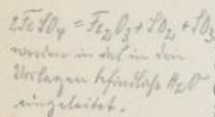 2FeSO₄ = Fe₂O₃ + SO₂ + SO₃
werden in das in den
Vorlagen befindliche H₂O
eingeleitet.